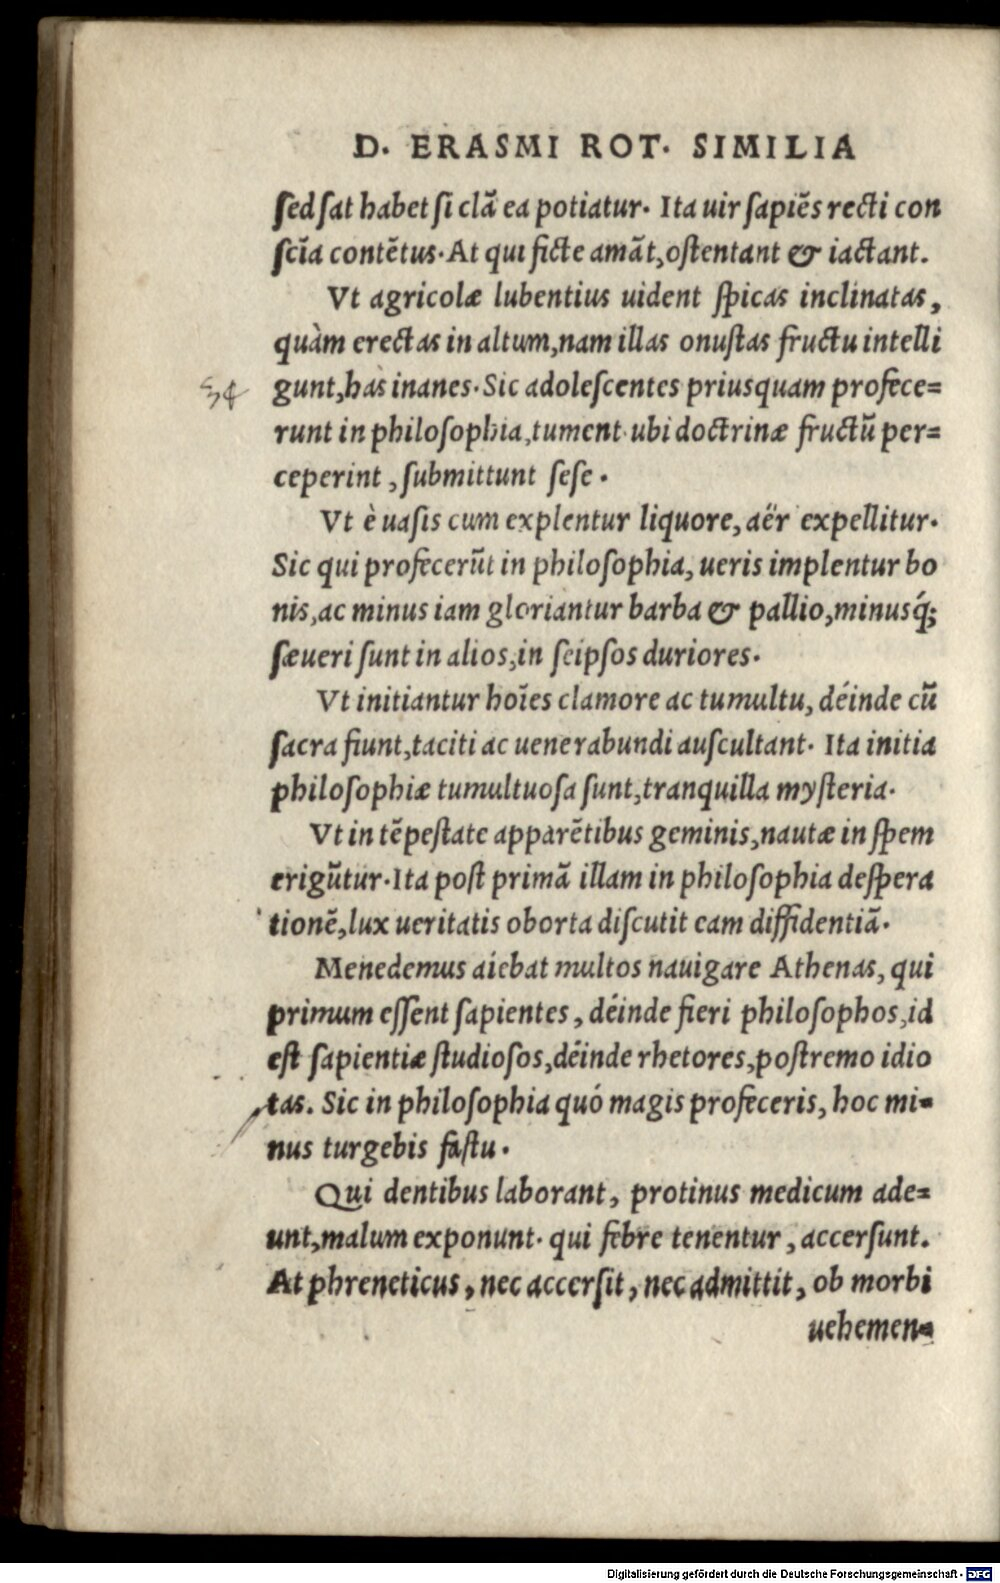 D. ERASMI ROT. SIMILIA
ſed ſat habet ſi clā ea potiatur. Ita uir ſapiēs recti con
ſcīa contētus. At qui ficte amāt, oſtentant & iactant.
Vt agricolæ lubentius uident ſpicas inclinatas,
quàm erectas in altum, nam illas onuſtas fructu intelli
gunt, has inanes. Sic adoleſcentes priusquam profece=
runt in philoſophia, tument. ubi doctrinæ fructū per=
ceperint, ſubmittunt ſeſe.
Vt è uaſis cum explentur liquore, aër expellitur.
Sic qui profecerūt in philoſophia, ueris implentur bo
nis, ac minus iam gloriantur barba & pallio, minusq́;
ſæueri ſunt in alios, in ſeipſos duriores.
Vt initiantur hoīes clamore ac tumultu, déinde cū
ſacra fiunt, taciti ac uenerabundi auſcultant. Ita initia
philoſophiæ tumultuoſa ſunt, tranquilla myſteria.
Vt in tēpeſtate apparētibus geminis, nautæ in ſpem
erigūtur. Ita poſt primā illam in philoſophia deſpera
tionē, lux ueritatis oborta diſcutit eam diffidentiā.
Menedemus aiebat multos nauigare Athenas, qui
primum eſſent ſapientes, déinde fieri philoſophos, id
eſt ſapientiæ ſtudioſos, déinde rhetores, poſtremo idio
tas. Sic in philoſophia quó magis profeceris, hoc mi=
nus turgebis faſtu.
Qui dentibus laborant, protinus medicum ade=
unt, malum exponunt. qui febre tenentur, accerſunt.
At phreneticus, nec accerſit, nec admittit, ob morbi
uehemen=
Digitalisierung gefördert durch die Deutsche Forschungsgemeinschaft - DFG